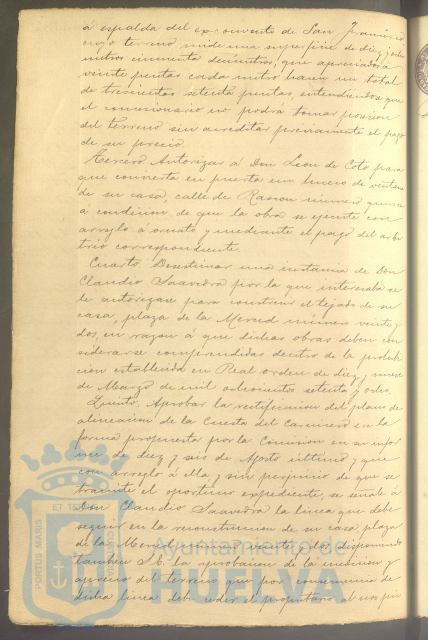 á espalda del ex-convento de San Francisco
cuyo terreno mide una superficie de diez y ocho
metros cincuenta decímetros, que apreciados á
veinte pesetas cada metro hacen un total
de trescientas setenta pesetas, entendiendose que
el concesionario no podrá tomar posesion
del terreno sin acreditar previamente el pago
de su precio.
Tercero. Autorizar á Don Leon de Coto para
que convierta en puerta un hueco de ventana
de su casa, calle de Rascon número quince
á condicion de que la obra se ejecute con
arreglo á ornato y mediante el pago del arbi
trio correspondiente.
Cuarto. Desestimar una instancia de Don
Claudio Saavedra por la que interesaba se
le autorizase para construir el tejado de su
casa, plaza de la Merced número veinte y
dos, en razon á que dichas obras deben con
siderarse comprendidas dentro de la prohibi
cion establecida en Real orden de diez y nueve
de Marzo de mil ochocientos setenta y ocho.
Quinto. Aprobar la rectificacion del plano de
alineacion de la Cuesta del Carnicero en la
forma propuesta por la Comision en su infor
me de diez y seis de Agosto último y que
con arreglo á ella y sin perjuicio de que se
tramite el oportuno expediente, se señale á
Don Claudio Saavedra la linea que debe
seguir en la reconstruccion de su casa, plaza
de la Merced número veinte y dos, disponiendo
tambien S.E. la aprobacion de la medicion y
aprecio del terreno que por consecuencia de
dicha linea debe ceder el propietario al uso pú
PORTUS MARIS
ET TE
Ayuntamiento de
HUELVA